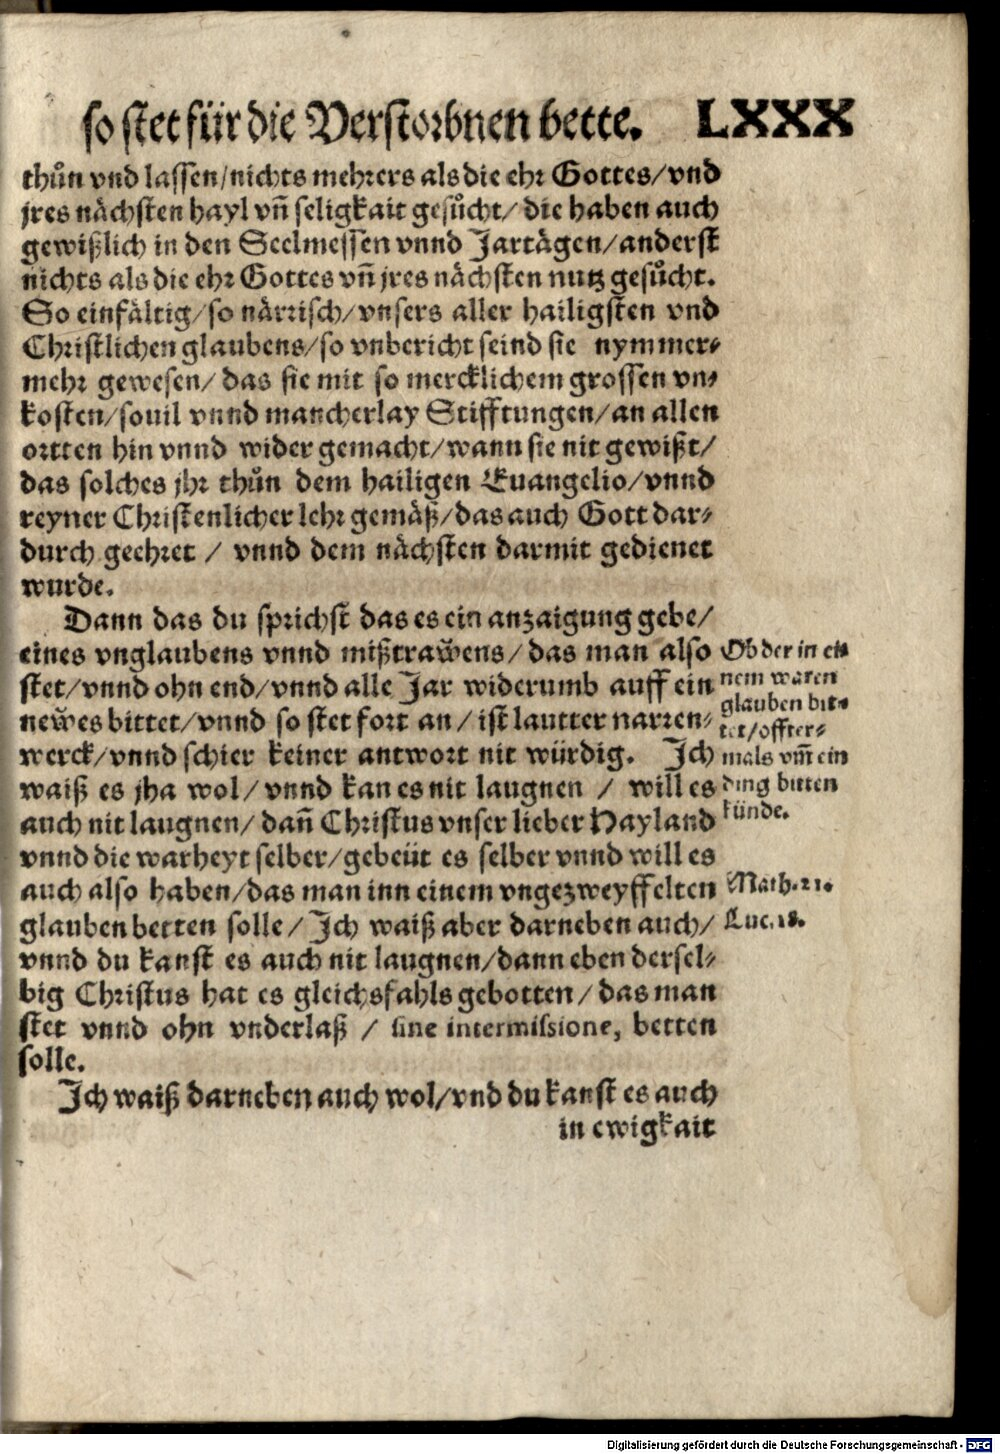 so stet für die Verstorbnen bette. LXXX
thůn vnd lassen/nichts mehrers als die ehr Gottes/vnd
jres nächsten hayl vñ seligkait gesůcht/ die haben auch
gewißlich in den Seelmessen vnnd Jartägen/anderst
nichts als die ehr Gottes vñ jres nächsten nutz gesůcht.
So einfältig/so närrisch/vnsers aller hailigsten vnd
Christlichen glaubens/so vnbericht seind sie nymmer-
mehr gewesen/ das sie mit so mercklichem grossen vn-
kosten/souil vnnd mancherlay Stifftungen/an allen
ortten hin vnnd wider gemacht/wann sie nit gewißt/
das solches jhr thůn dem hailigen Euangelio/vnnd
reyner Christenlicher lehr gemäß/das auch Gott dar-
durch geehret / vnnd dem nächsten darmit gedienet
wurde.
Dann das du sprichst das es ein anzaigung gebe/
eines vnglaubens vnnd mißtrawens/das man also
stet/vnnd ohn end/vnnd alle Jar widerumb auff ein
newes bittet/vnnd so stet fort an/ist lautter narren-
werck/vnnd schier keiner antwort nit würdig. Ich
waiß es jha wol/vnnd kan es nit laugnen / will es
auch nit laugnen/dañ Christus vnser lieber Hayland
vnnd die warheyt selber/gebeüt es selber vnnd will es
auch also haben/das man inn einem vngezweyffelten
glauben betten solle/Ich waiß aber darneben auch/
vnnd du kanst es auch nit laugnen/dann eben dersel-
big Christus hat es gleichsfahls gebotten/das man
stet vnnd ohn vnderlaß / sine intermissione, betten
solle.
Ich waiß darneben auch wol/vnd du kanst es auch
in ewigkait
Ob der in ei-
nem waren
glauben bit-
tet/offter-
mals vm̃ ein
ding bitten
künde.
Math. 21.
Luc. 18.
Digitalisierung gefördert durch die Deutsche Forschungsgemeinschaft - DFG